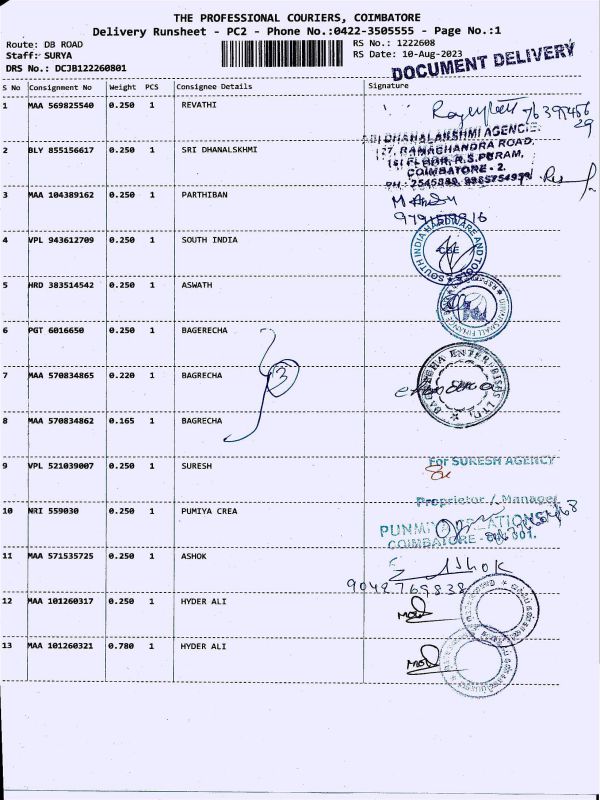 THE PROFESSIONAL COURIERS, COIMBATORE
Delivery Runsheet - PC2 - Phone No.:0422-3505555 - Page No.:1
Route: DB ROAD
RS No.: 1222608
Staff: SURYA
RS Date: 10-Aug-2023
DRS No.: DCJB122260801
DOCUMENT DELIVERY
S No Consignment No Weight PCS Consignee Details Signature
1 MAA 569825540 0.250 1 REVATHI
2 BLY 855156617 0.250 1 SRI DHANALSKHMI
DHANALAKSHMI AGENCIE
127, RAMACHANDRA ROAD,
1st FLOOR, R.S.PURAM,
COIMBATORE - 2.
3 MAA 104389162 0.250 1 PARTHIBAN
4 VPL 943612709 0.250 1 SOUTH INDIA
SOUTH INDIA HARDWARE AND TOOLS
CBE
5 HRD 383514542 0.250 1 ASWATH
SMALL FINANCE
6 PGT 6016650 0.250 1 BAGERECHA
7 MAA 570834865 0.220 1 BAGRECHA
3
BAGRECHA ENTERPRISES LTD.
8 MAA 570834862 0.165 1 BAGRECHA
9 VPL 521039007 0.250 1 SURESH
For SURESH AGENCY
Proprietor / Manager
10 NRI 559030 0.250 1 PUMIYA CREA
COIMBATORE - 001.
11 MAA 571535725 0.250 1 ASHOK
ASHOK
9042769838
12 MAA 101260317 0.250 1 HYDER ALI
13 MAA 101260321 0.780 1 HYDER ALI